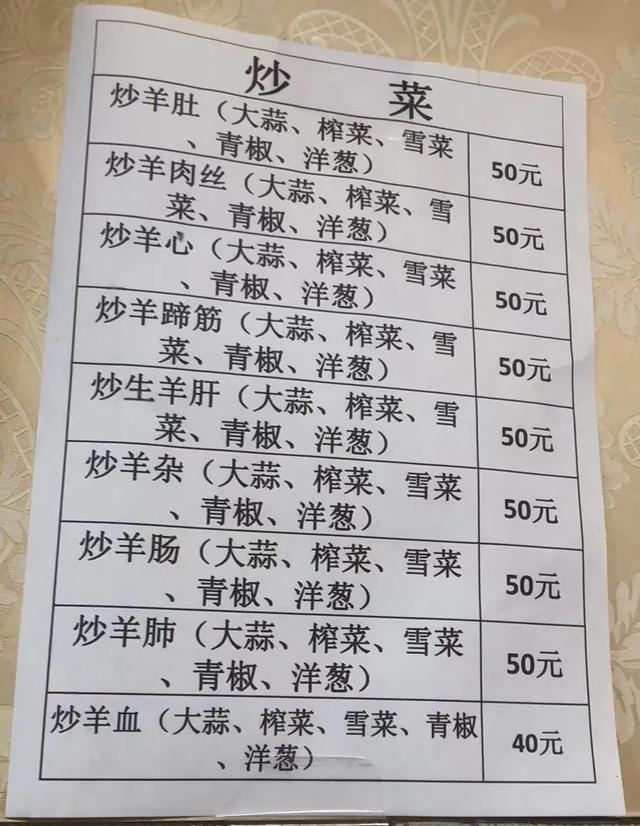 炒 菜
炒羊肚（大蒜、榨菜、雪菜
、青椒、洋葱）
50元
炒羊肉丝（大蒜、榨菜、雪
菜、青椒、洋葱）
50元
炒羊心（大蒜、榨菜、雪菜
、青椒、洋葱）
50元
炒羊蹄筋（大蒜、榨菜、雪
菜、青椒、洋葱）
50元
炒生羊肝（大蒜、榨菜、雪
菜、青椒、洋葱）
50元
炒羊杂（大蒜、榨菜、雪菜
、青椒、洋葱）
50元
炒羊肠（大蒜、榨菜、雪菜
、青椒、洋葱）
50元
炒羊肺（大蒜、榨菜、雪菜
、青椒、洋葱）
50元
炒羊血（大蒜、榨菜、雪菜、青椒
、洋葱）
40元